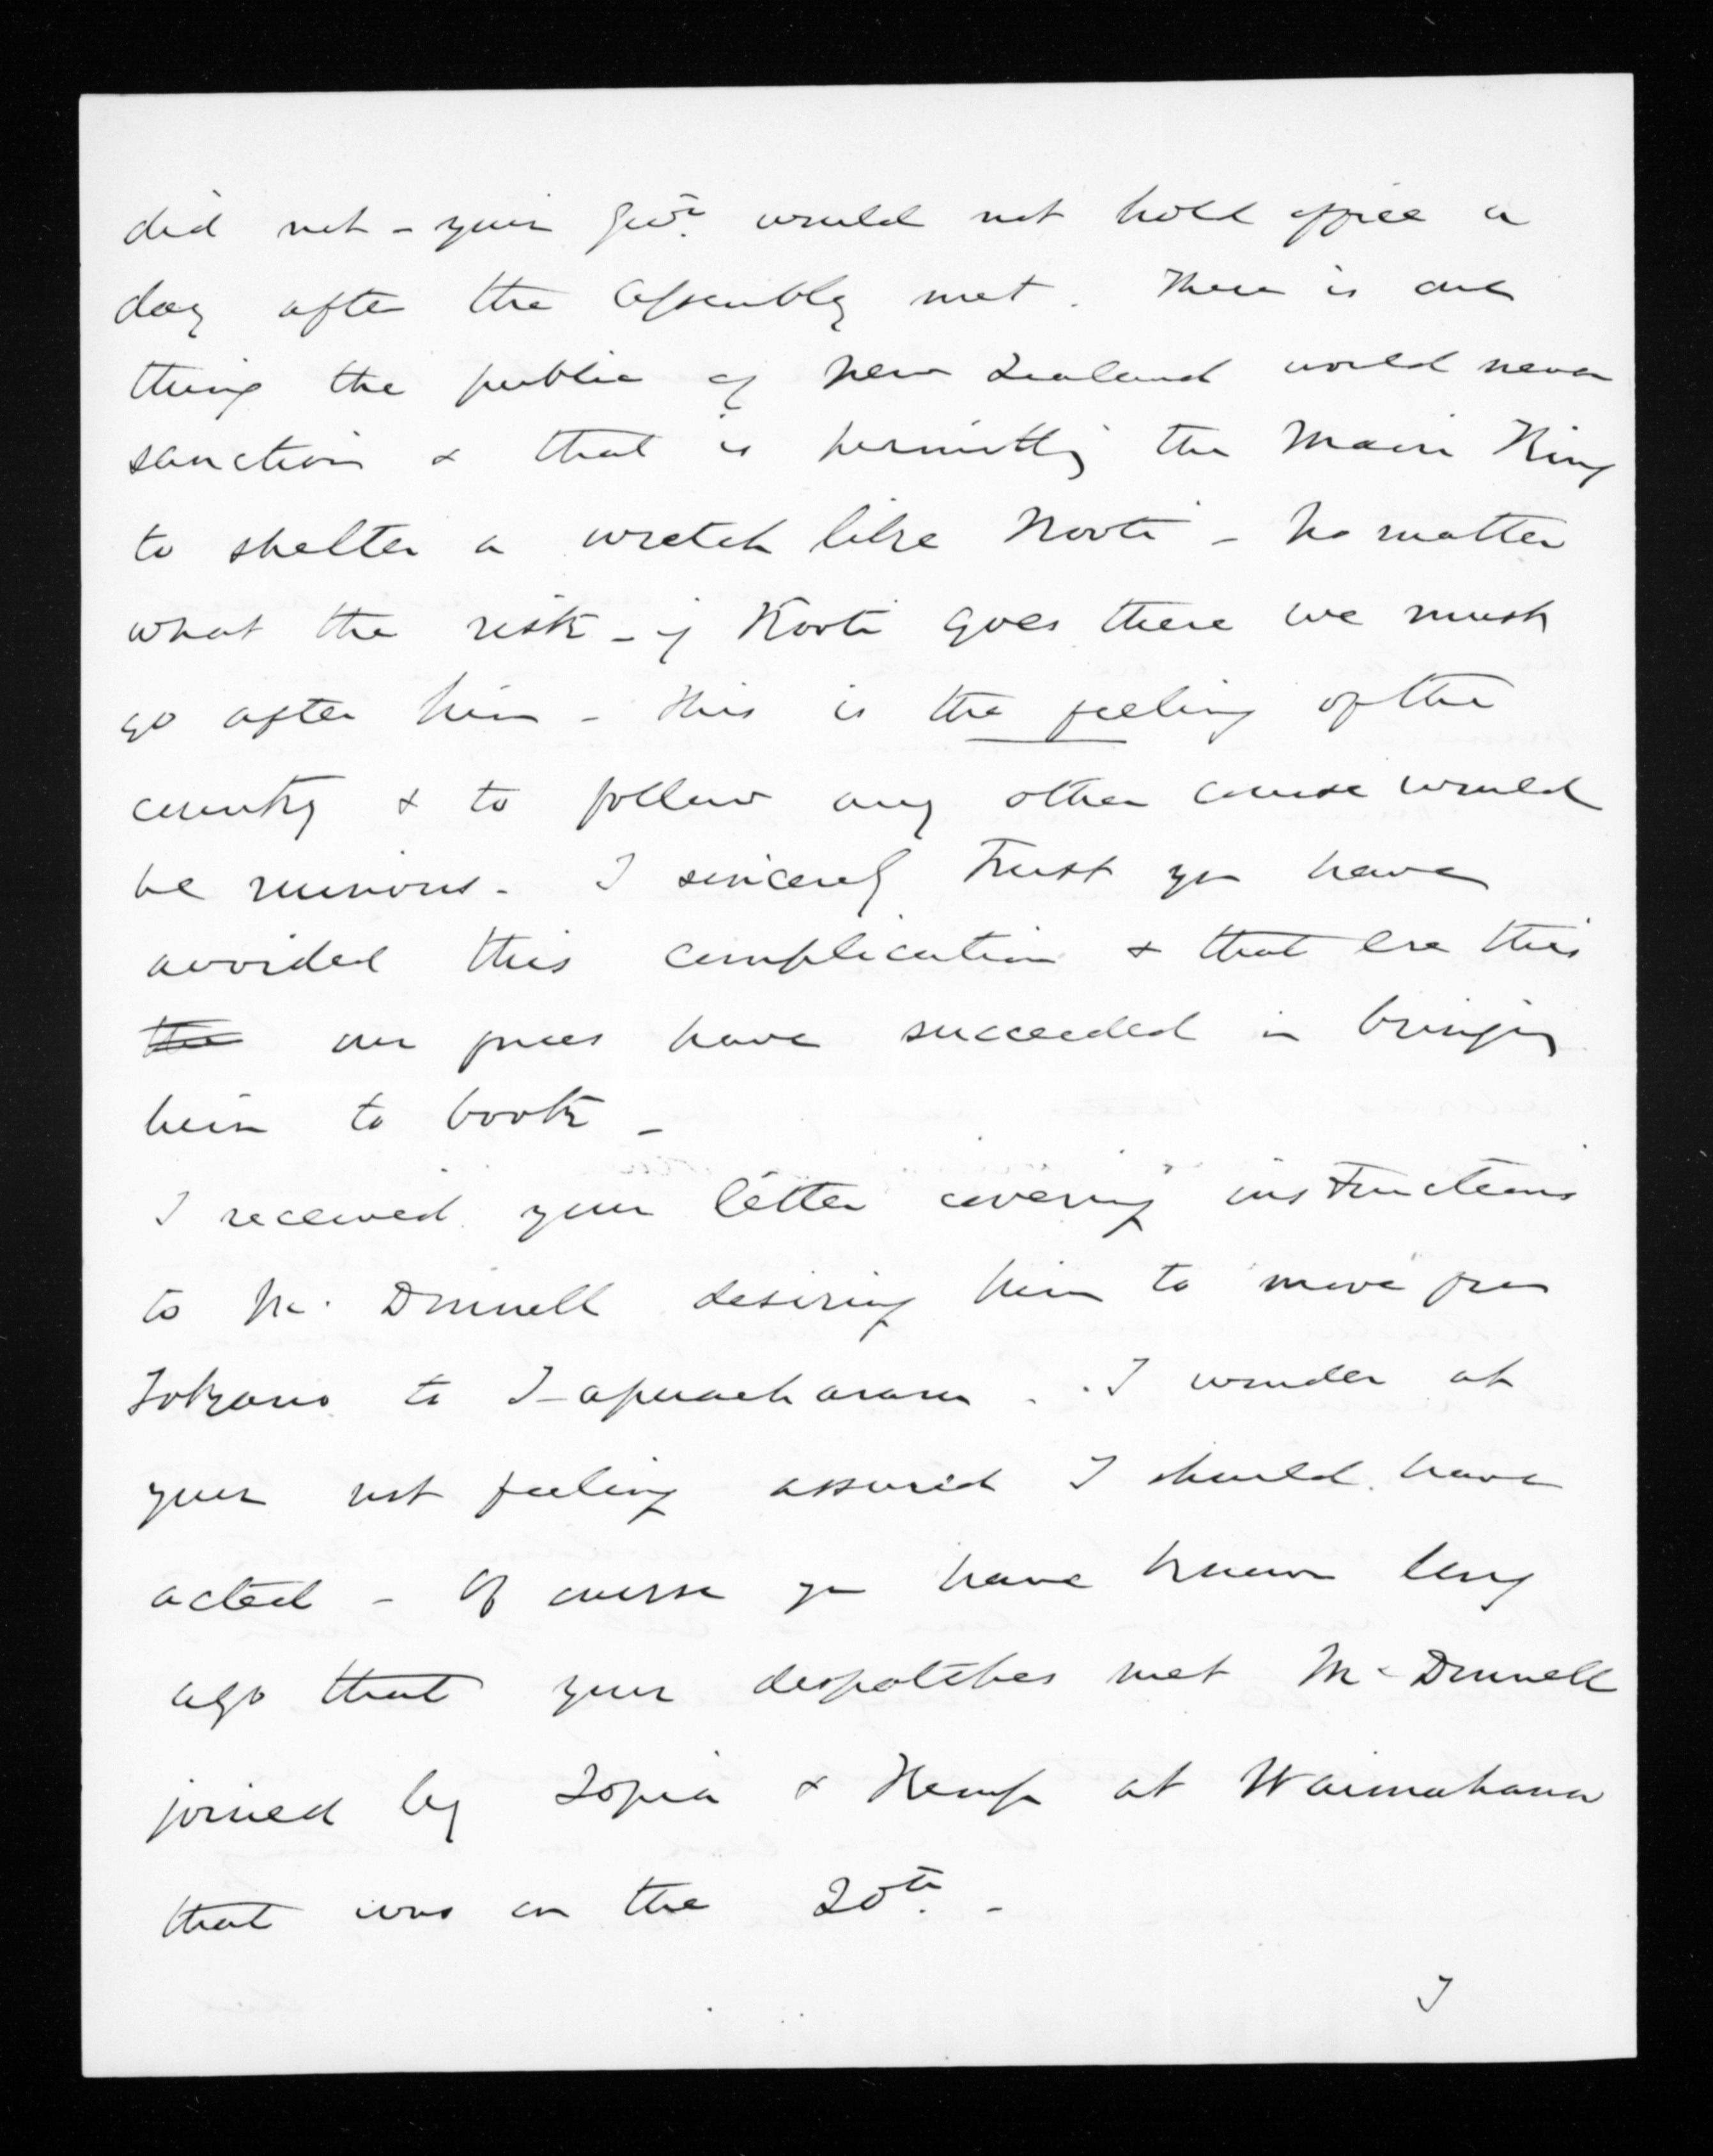 did not - your Govt. would not hold office a
day after the Assembly met. There is one
thing the public of New Zealand would never
sanction & that is permitting the Maori King
to shelter a wretch like Kooti - no matter
what the risk - if Kooti goes there we must
go after him - this is the feeling of the
country & to follow any other course would
be ruinous - I sincerely trust you have
avoided this complication & that ere this
the our forces have succeeded in bringing
him to book -
I received your letter covering instructions
to Mc. Donnell desiring him to move from
Tokano to Tapuaeharuru. I wonder at
your not feeling assured I should have
acted - Of course you have known long
ago that your despatches met McDonnell
joined by Topia & Kemp at Waimahana
that was on the 20th. -
I